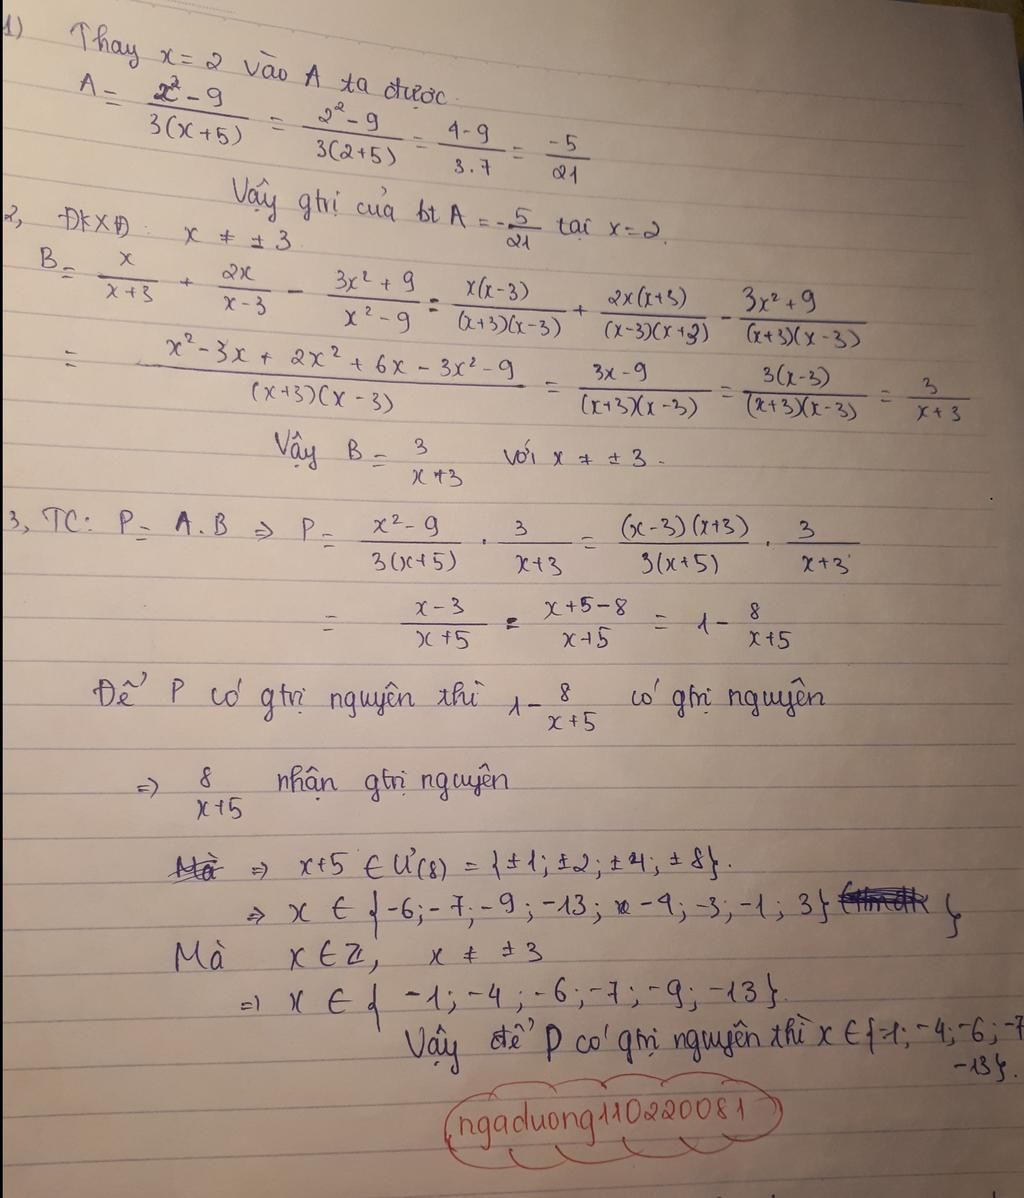 1) Thay x = 2 vào A ta được
A = \frac{x^2 - 9}{3(x+5)} = \frac{2^2 - 9}{3(2+5)} = \frac{4-9}{3.7} = \frac{-5}{21}
Vậy gtrị của bt A = -\frac{5}{21} tại x = 2.
2, ĐKXĐ: x ≠ ± 3
B = \frac{x}{x+3} + \frac{2x}{x-3} - \frac{3x^2 + 9}{x^2 - 9} = \frac{x(x-3)}{(x+3)(x-3)} + \frac{2x(x+3)}{(x-3)(x+3)} - \frac{3x^2 + 9}{(x+3)(x-3)}
= \frac{x^2 - 3x + 2x^2 + 6x - 3x^2 - 9}{(x+3)(x-3)} = \frac{3x - 9}{(x+3)(x-3)} = \frac{3(x-3)}{(x+3)(x-3)} = \frac{3}{x+3}
Vậy B = \frac{3}{x+3} với x ≠ ± 3.
3, TC: P = A.B ⇒ P = \frac{x^2 - 9}{3(x+5)} . \frac{3}{x+3} = \frac{(x-3)(x+3)}{3(x+5)} . \frac{3}{x+3}
= \frac{x-3}{x+5} = \frac{x+5-8}{x+5} = 1 - \frac{8}{x+5}
Để P có gtrị nguyên thì 1 - \frac{8}{x+5} có gtrị nguyên
⇒ \frac{8}{x+5} nhận gtrị nguyên
Mà ⇒ x+5 ∈ Ư(8) = {±1; ±2; ±4; ±8}.
⇒ x ∈ {-6; -7; -9; -13; -4; -3; -1; 3} }
Mà x ∈ Z, x ≠ ± 3
⇒ x ∈ { -1; -4; -6; -7; -9; -13}.
Vậy để P có gtrị nguyên thì x ∈ {-1; -4; -6; -7
-13}.
ngaduong110220081